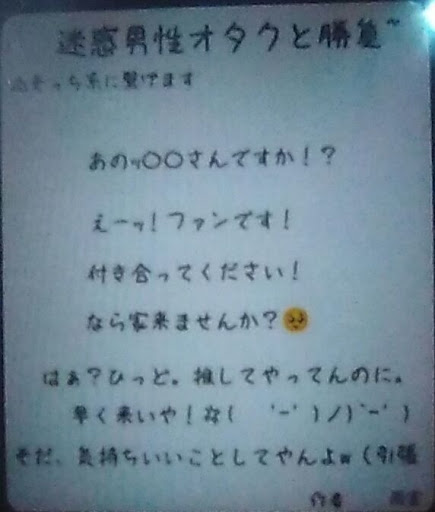 迷惑男性オタクと勝負~
⚠そっち系に繋げます
あのッ〇〇さんですか!?
えーッ!ファンです!
付き合ってください!
なら家来ませんか?🥺
はぁ?ひっど。推してやってんのに。
早く来いや!な( '-' )ノ)`-' )
そだ、気持ちいいことしてやんよw(引張
作者